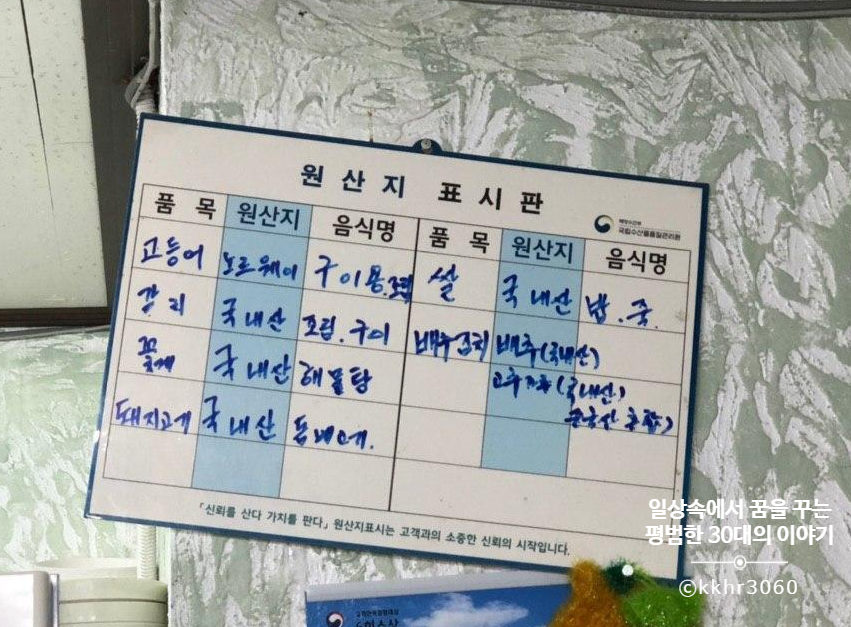 원산지 표시판
해양수산부
국립수산물품질관리원
품목 원산지 음식명
고등어 노르웨이 구이용,조림
갈치 국내산 조림.구이
꽃게 국내산 해물탕
돼지고기 국내산
품목 원산지 음식명
쌀 국내산 밥.죽.
배추김치 배추(국내산)
고추가루(국내산)
중국산 혼합)
「신뢰를 산다 가치를 판다」 원산지표시는 고객과의 소중한 신뢰의 시작입니다.
일상속에서 꿈을 꾸는
평범한 30대의 이야기
©kkhr3060